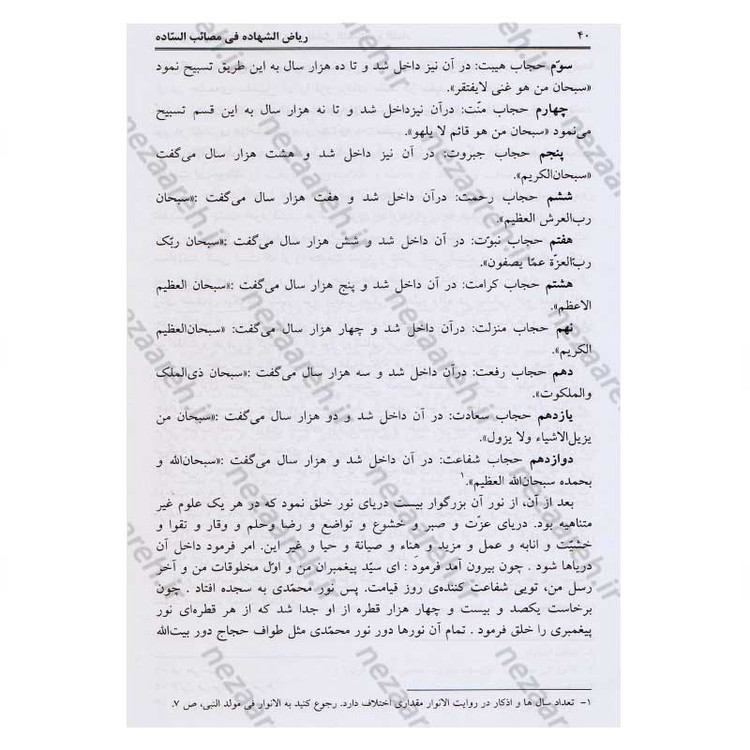 ۴۰
ریاض الشهاده فی مصائب السّاده
سوّم حجاب هیبت: در آن نیز داخل شد و تا ده هزار سال به این طریق تسبیح نمود
«سبحان من هو غنی لایفتقر».
چهارم حجاب منّت: درآن نیزداخل شد و تا نه هزار سال به این قسم تسبیح
می‌نمود «سبحان من هو قائم لا یلهو».
پنجم حجاب جبروت: در آن نیز داخل شد و هشت هزار سال می‌گفت
«سبحان‌الکریم».
ششم حجاب رحمت: درآن داخل شد و هفت هزار سال می‌گفت :«سبحان
رب‌العرش العظیم».
هفتم حجاب نبوّت: در آن داخل شد و شش هزار سال می‌گفت :«سبحان ربّک
ربّ‌العزّة عمّا یصفون».
هشتم حجاب کرامت: در آن داخل شد و پنج هزار سال می‌گفت: «سبحان العظیم
الاعظم».
نهم حجاب منزلت: درآن داخل شد و چهار هزار سال می‌گفت: «سبحان‌العظیم
الکریم».
دهم حجاب رفعت: درآن داخل شد و سه هزار سال می‌گفت :«سبحان ذی‌الملک
والملکوت».
یازدهم حجاب سعادت: در آن داخل شد و دو هزار سال می‌گفت :«سبحان من
یزیل‌الاشیاء ولا یزول».
دوازدهم حجاب شفاعت: در آن داخل شد و هزار سال می‌گفت :«سبحان‌الله و
بحمده سبحان‌الله العظیم».۱
بعد از آن، از نور آن بزرگوار بیست دریای نور خلق نمود که در هر یک علوم غیر
متناهیه بود. دریای عزّت و صبر و خشوع و تواضع و رضا وحلم و وقار و تقوا و
خشیّت و انابه و عمل و مزید و هناء و صیانة و حیا و غیر این. امر فرمود داخل آن
دریاها شود . چون بیرون آمد فرمود : ای سیّد پیغمبران من و اوّل مخلوقات من و آخر
رسل من، تویی شفاعت کننده‌ی روز قیامت. پس نور محمّدی به سجده افتاد . چون
برخاست یکصد و بیست و چهار هزار قطره از او جدا شد که از هر قطره‌ای نور
پیغمبری را خلق فرمود . تمام آن نورها دور نور محمّدی مثل طواف حجاج دور بیت‌الله
۱- تعداد سال ها و اذکار در روایت الانوار مقداری اختلاف دارد. رجوع کنید به الانوار فی مولد النبی، ص ۷.
nezaareh.ir